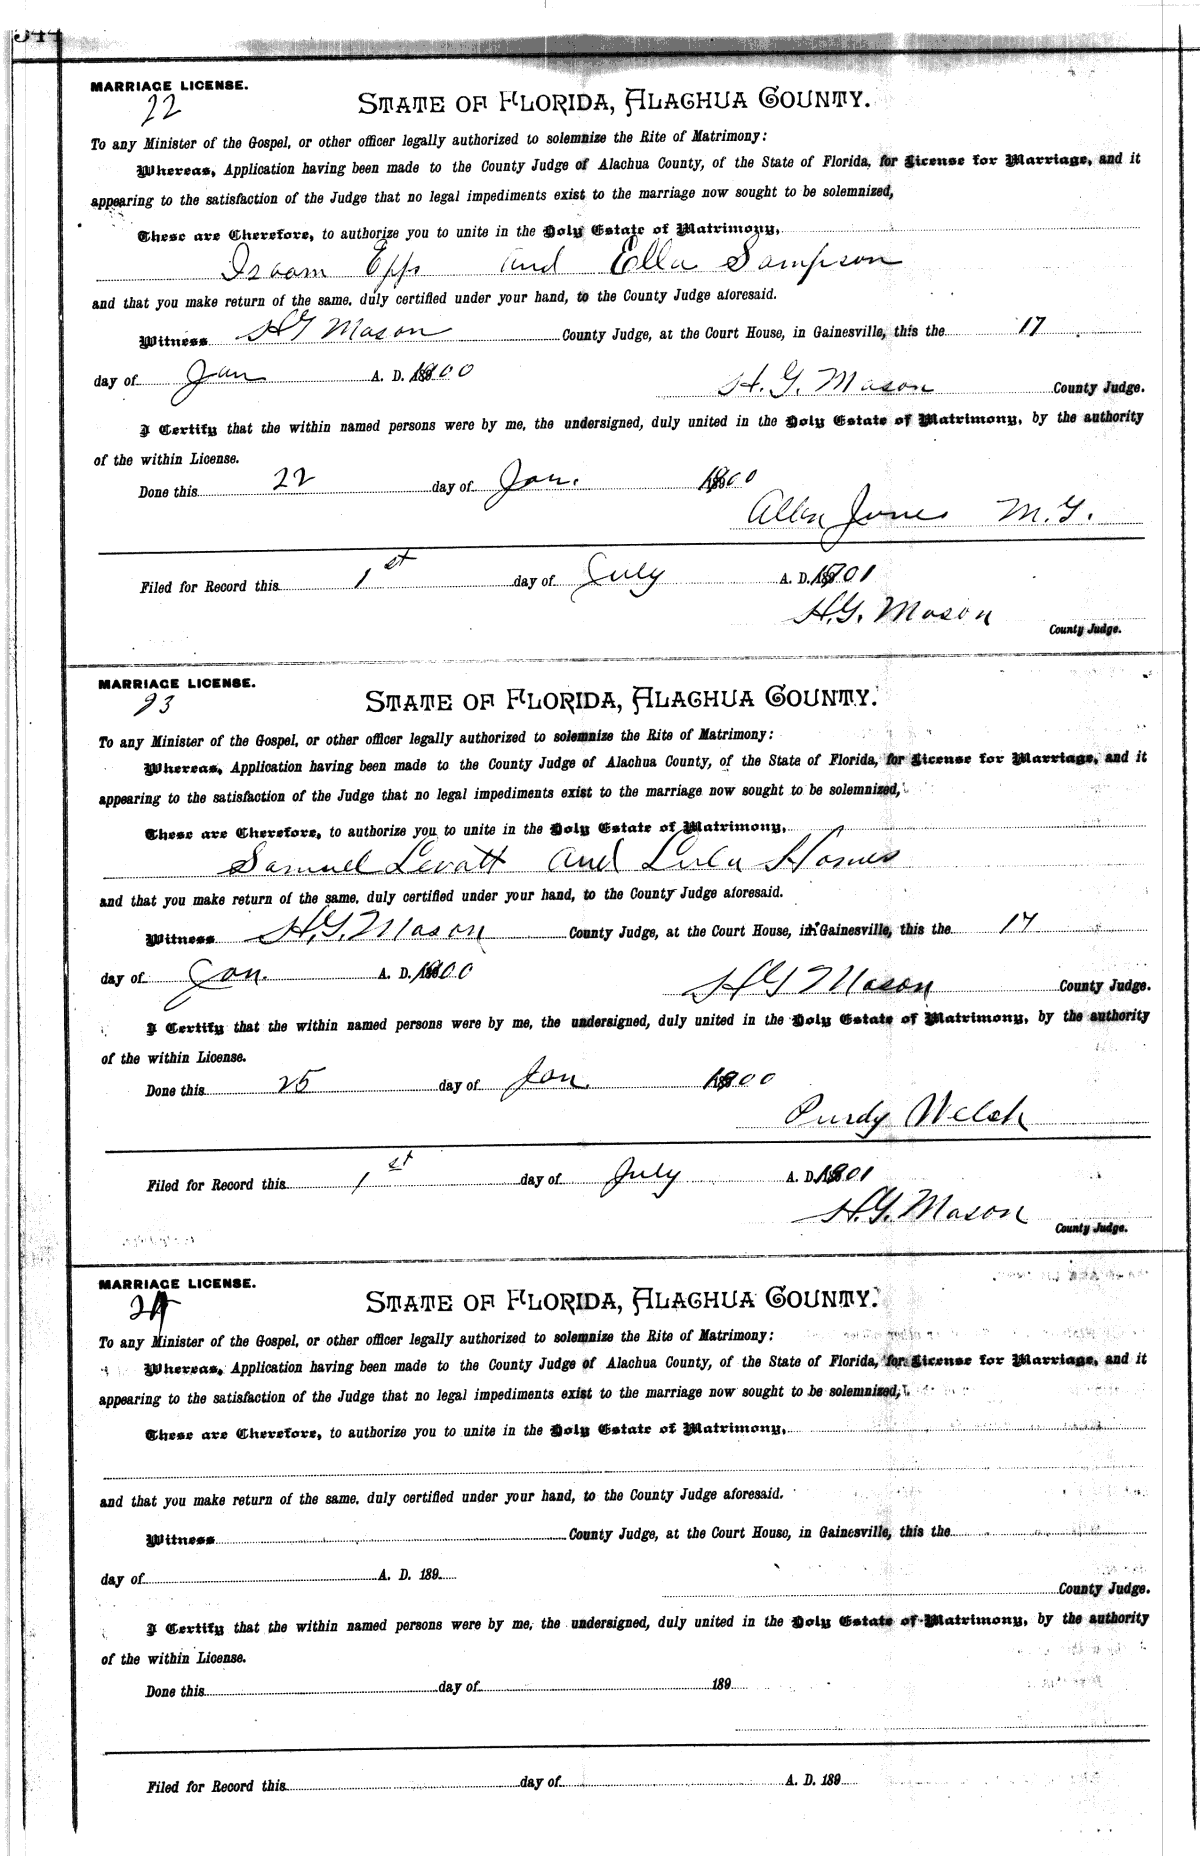 344
MARRIAGE LICENSE.
22
STATE OF FLORIDA, ALACHUA COUNTY.
To any Minister of the Gospel, or other officer legally authorized to solemnize the Rite of Matrimony:
Whereas, Application having been made to the County Judge of Alachua County, of the State of Florida, for License for Marriage, and it
appearing to the satisfaction of the Judge that no legal impediments exist to the marriage now sought to be solemnized,
These are Therefore, to authorize you to unite in the Holy Estate of Matrimony,
Isaam Epps and Ella Sampson
and that you make return of the same, duly certified under your hand, to the County Judge aforesaid.
Witness H G Mason County Judge, at the Court House, in Gainesville, this the 17
day of Jan A. D. 1900
H. G. Mason County Judge.
I Certify that the within named persons were by me, the undersigned, duly united in the Holy Estate of Matrimony, by the authority
of the within License.
Done this 22 day of Jan. 1900
Allen Jones M. G.
Filed for Record this 1st day of July A. D. 1901
H. G. Mason
County Judge.
MARRIAGE LICENSE.
23
STATE OF FLORIDA, ALACHUA COUNTY.
To any Minister of the Gospel, or other officer legally authorized to solemnize the Rite of Matrimony:
Whereas, Application having been made to the County Judge of Alachua County, of the State of Florida, for License for Marriage, and it
appearing to the satisfaction of the Judge that no legal impediments exist to the marriage now sought to be solemnized,
These are Therefore, to authorize you to unite in the Holy Estate of Matrimony,
Samuel Levatt and Lula
and that you make return of the same, duly certified under your hand, to the County Judge aforesaid.
Witness H. G. Mason County Judge, at the Court House, in Gainesville, this the 17
day of Jan. A. D. 1900
H G Mason County Judge.
I Certify that the within named persons were by me, the undersigned, duly united in the Holy Estate of Matrimony, by the authority
of the within License.
Done this 25 day of Jan 1900
Purdy Welch
Filed for Record this 1st day of July A. D. 1901
H. G. Mason
County Judge.
MARRIAGE LICENSE.
24
STATE OF FLORIDA, ALACHUA COUNTY.
To any Minister of the Gospel, or other officer legally authorized to solemnize the Rite of Matrimony:
Whereas, Application having been made to the County Judge of Alachua County, of the State of Florida, for License for Marriage, and it
appearing to the satisfaction of the Judge that no legal impediments exist to the marriage now sought to be solemnized,
These are Therefore, to authorize you to unite in the Holy Estate of Matrimony,
and that you make return of the same, duly certified under your hand, to the County Judge aforesaid.
Witness County Judge, at the Court House, in Gainesville, this the
day of A. D. 189
County Judge.
I Certify that the within named persons were by me, the undersigned, duly united in the Holy Estate of Matrimony, by the authority
of the within License.
Done this day of 189
Filed for Record this day of A. D. 189